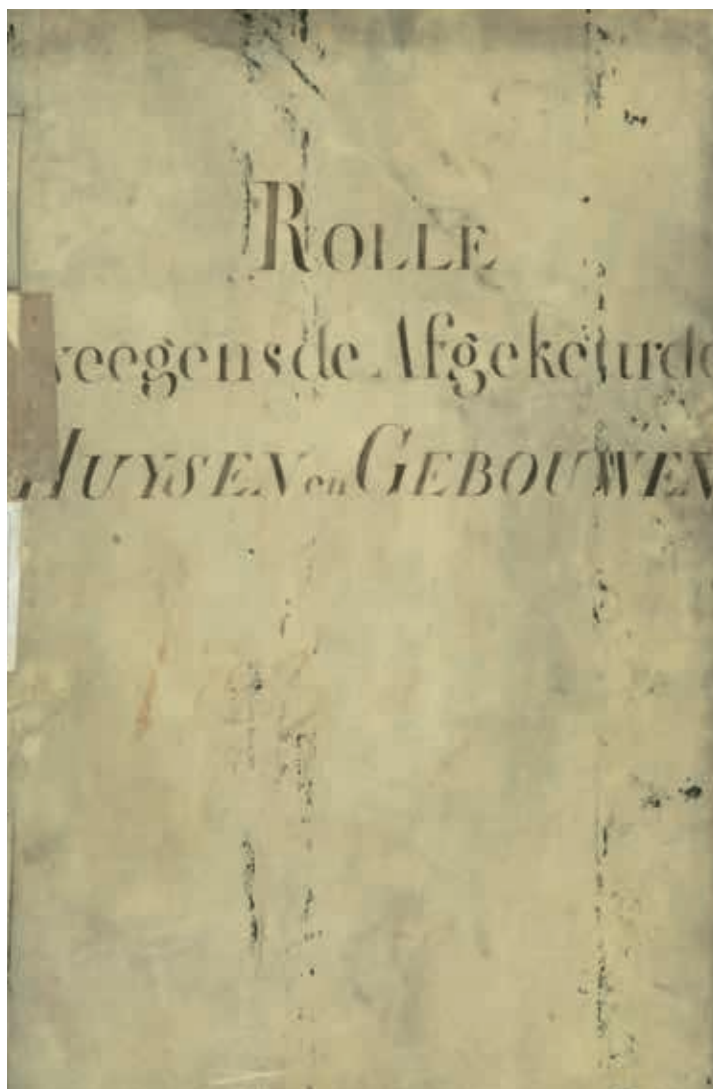 ROLLE
weegens de Afgekeurde
HUYSEN en GEBOUWEN